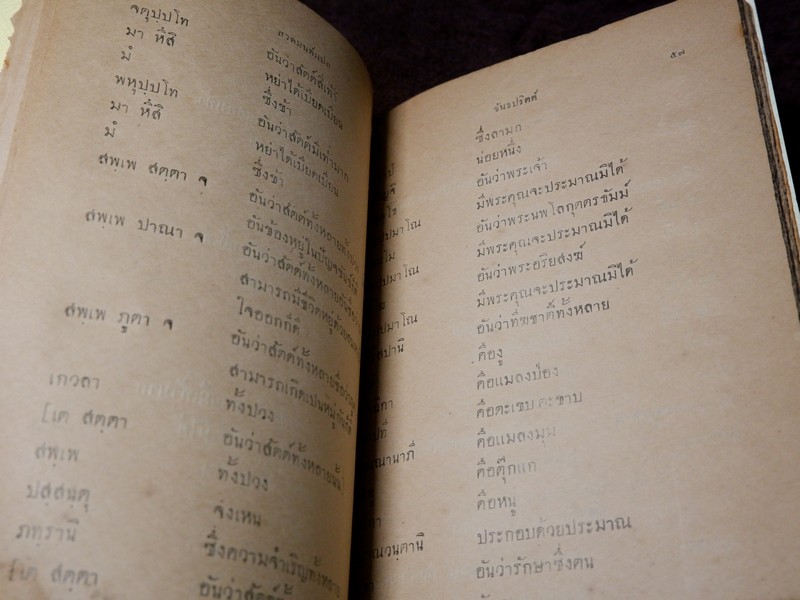 สวดมนต์แปล
จตุปฺปโท อันว่าสัตต์สี่เท้า
มา หึสิ หย่าได้เบียดเบียน
มํ ซึ่งข้า
พหุปฺปโท อันว่าสัตต์มีเท้ามาก
มา หึสิ หย่าได้เบียดเบียน
มํ ซึ่งข้า
สพฺเพ สตฺตา จ อันว่าสัตต์ทั้งหลายทั้งปวง
อันข้องหยู่ในปัญจขันธ์
สพฺเพ ปาณา จ อันว่าสัตต์ทั้งหลาย
สามารถมีชีวิตหยู่ด้วย
ใจออกก็ดี
สพฺเพ ภูตา จ อันว่าสัตต์ทั้งหลาย
สามารถเกิดเป็นหมู่กันก็ดี
เกวลา ทั้งปวง
[เต สตฺตา อันว่าสัตต์ทั้งหลายนั้น]
สพฺเพ ทั้งปวง
ปสฺสนฺตุ จงเหน
ภทฺรานิ ซึ่งความจำเริญทั้งหลาย
[เต สตฺตา อันว่าสัตต์
๕๗
ขันธปริตต์
ซึ่งลามก
น่อยหนึ่ง
อันว่าพระเจ้า
มีพระคุณจะประมาณมิได้
อันว่าพระนพโลกุตตรธัมม์
ปมาโณ มีพระคุณจะประมาณมิได้
อันว่าพระอริยสงฆ์
ปมาโณ มีพระคุณจะประมาณมิได้
อันว่าทีฆชาติทั้งหลาย
คืองู
คือแมลงป่อง
คือตะเขบ ตะขาบ
คือแมลงมุม
คือตุ๊กแก
คือหนู
ประกอบด้วยประมาณ
อันว่ารักษาซึ่งตน